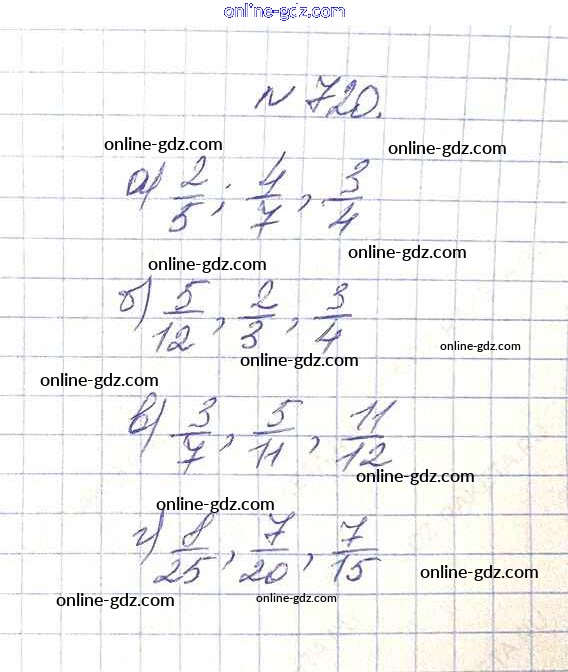 online-gdz.com
№ 720.
online-gdz.com online-gdz.com
а) 2/5; 4/7, 3/4
online-gdz.com online-gdz.com
б) 5/12, 2/3, 3/4
online-gdz.com online-gdz.com
online-gdz.com
в) 3/7, 5/11, 11/12
online-gdz.com
online-gdz.com
г) 8/25, 7/20, 7/15
online-gdz.com online-gdz.com online-gdz.com